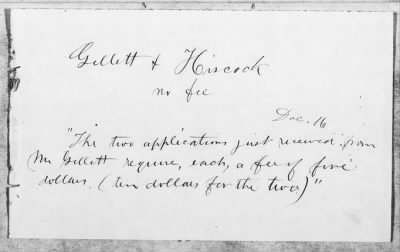 Gillett & Hiscock
no fee
Dec. 16
"The two applications just received from
Mr Gillett require, each, a fee of five
dollars. (ten dollars for the two)"